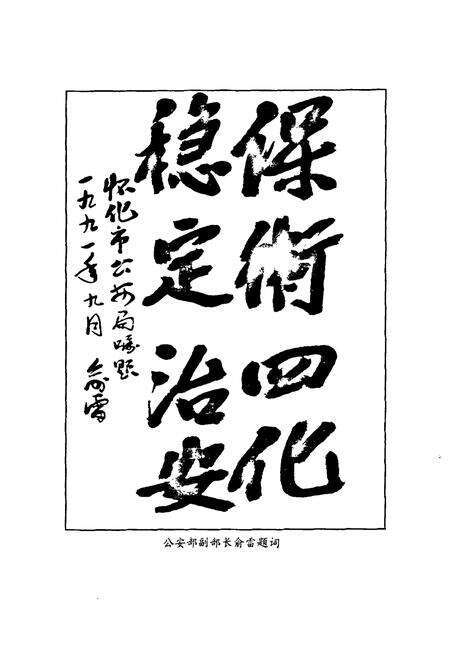 保衛四化
稳定治安
怀化市公安局嘱题
一九九一年九月 俞雷
公安部副部长俞雷题词